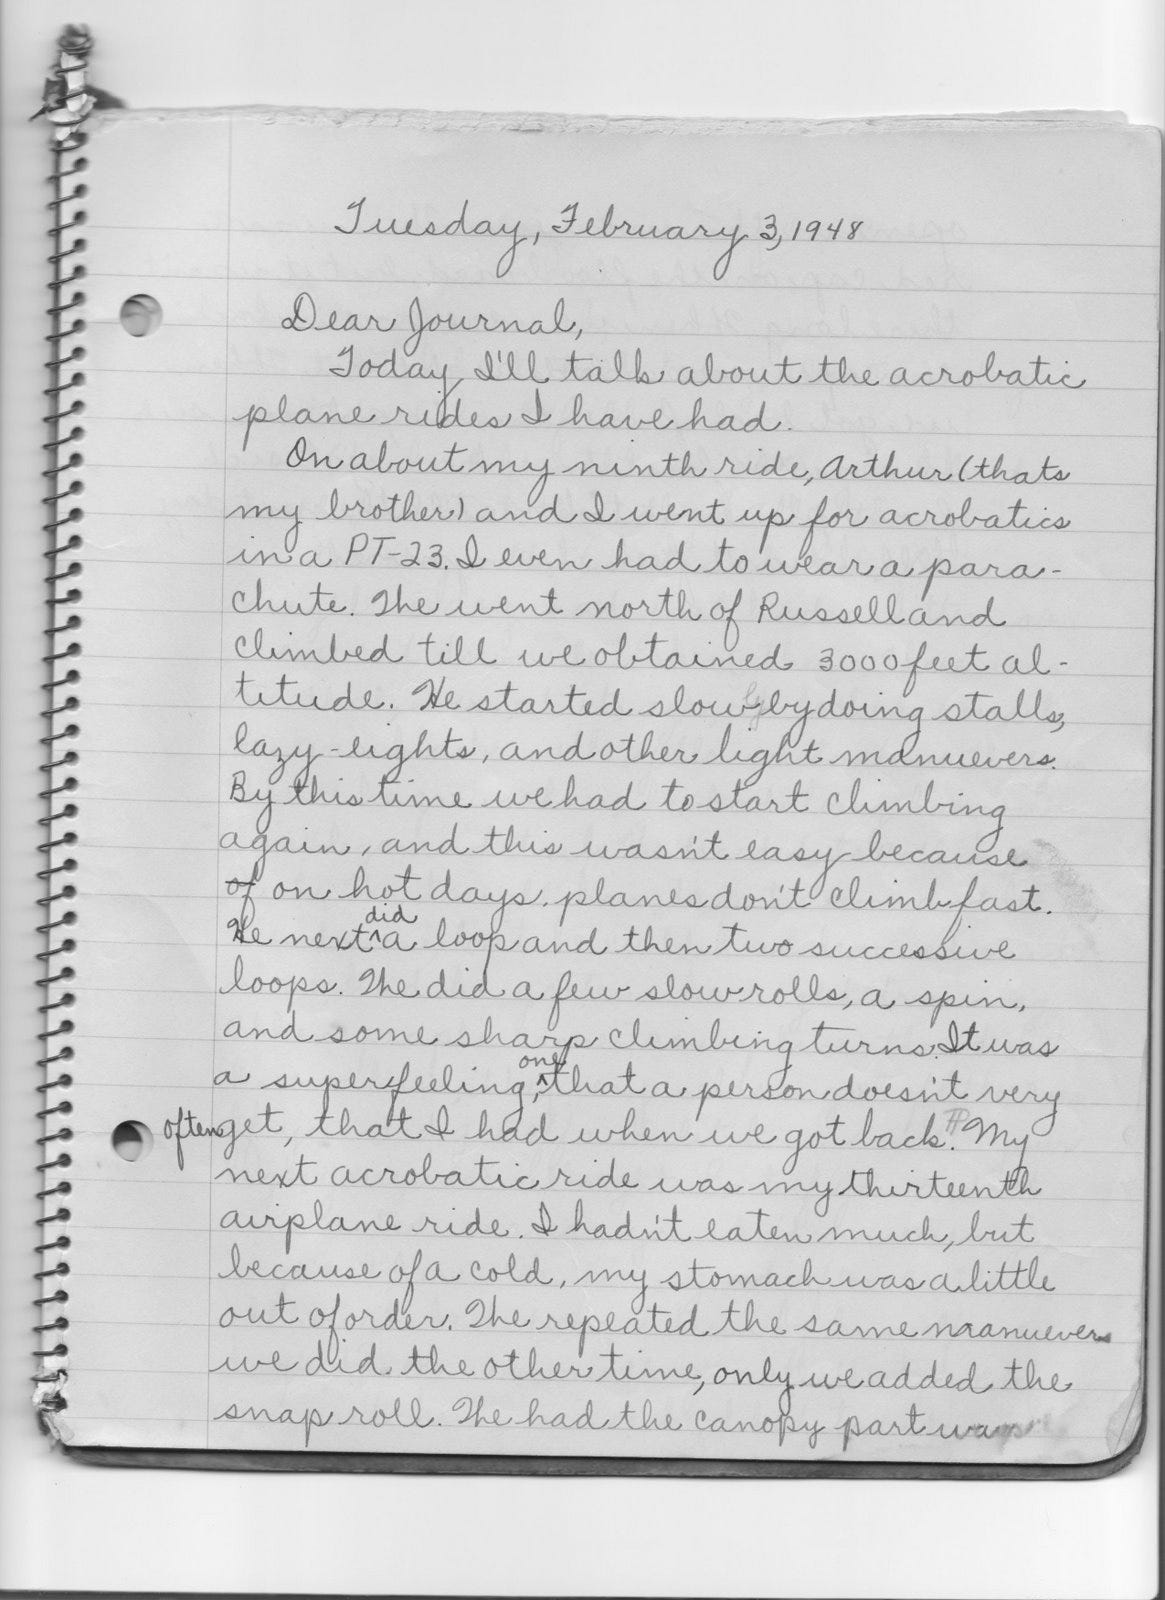 Tuesday, February 3, 1948
Dear Journal,
Today, I'll talk about the acrobatic
plane rides I have had.
On about my ninth ride, Arthur (thats
my brother) and I went up for acrobatics
in a PT-23. I even had to wear a para-
chute. We went north of Russell and
climbed till we obtained 3000 feet al-
titude. He started slowly by doing stalls,
lazy-eights, and other light manuevers.
By this time we had to start climbing
again, and this wasn't easy because
of on hot days, planes don't climb fast.
He next did a loop and then two successive
loops. We did a few slow rolls, a spin,
and some sharp climbing turns. It was
a super feeling, one that a person doesn't very
often get, that I had when we got back. ¶ My
next acrobatic ride was my thirteenth
airplane ride. I hadn't eaten much, but
because of a cold, my stomach was a little
out of order. We repeated the same manuevers
we did the other time, only we added the
snap roll. We had the canopy part way